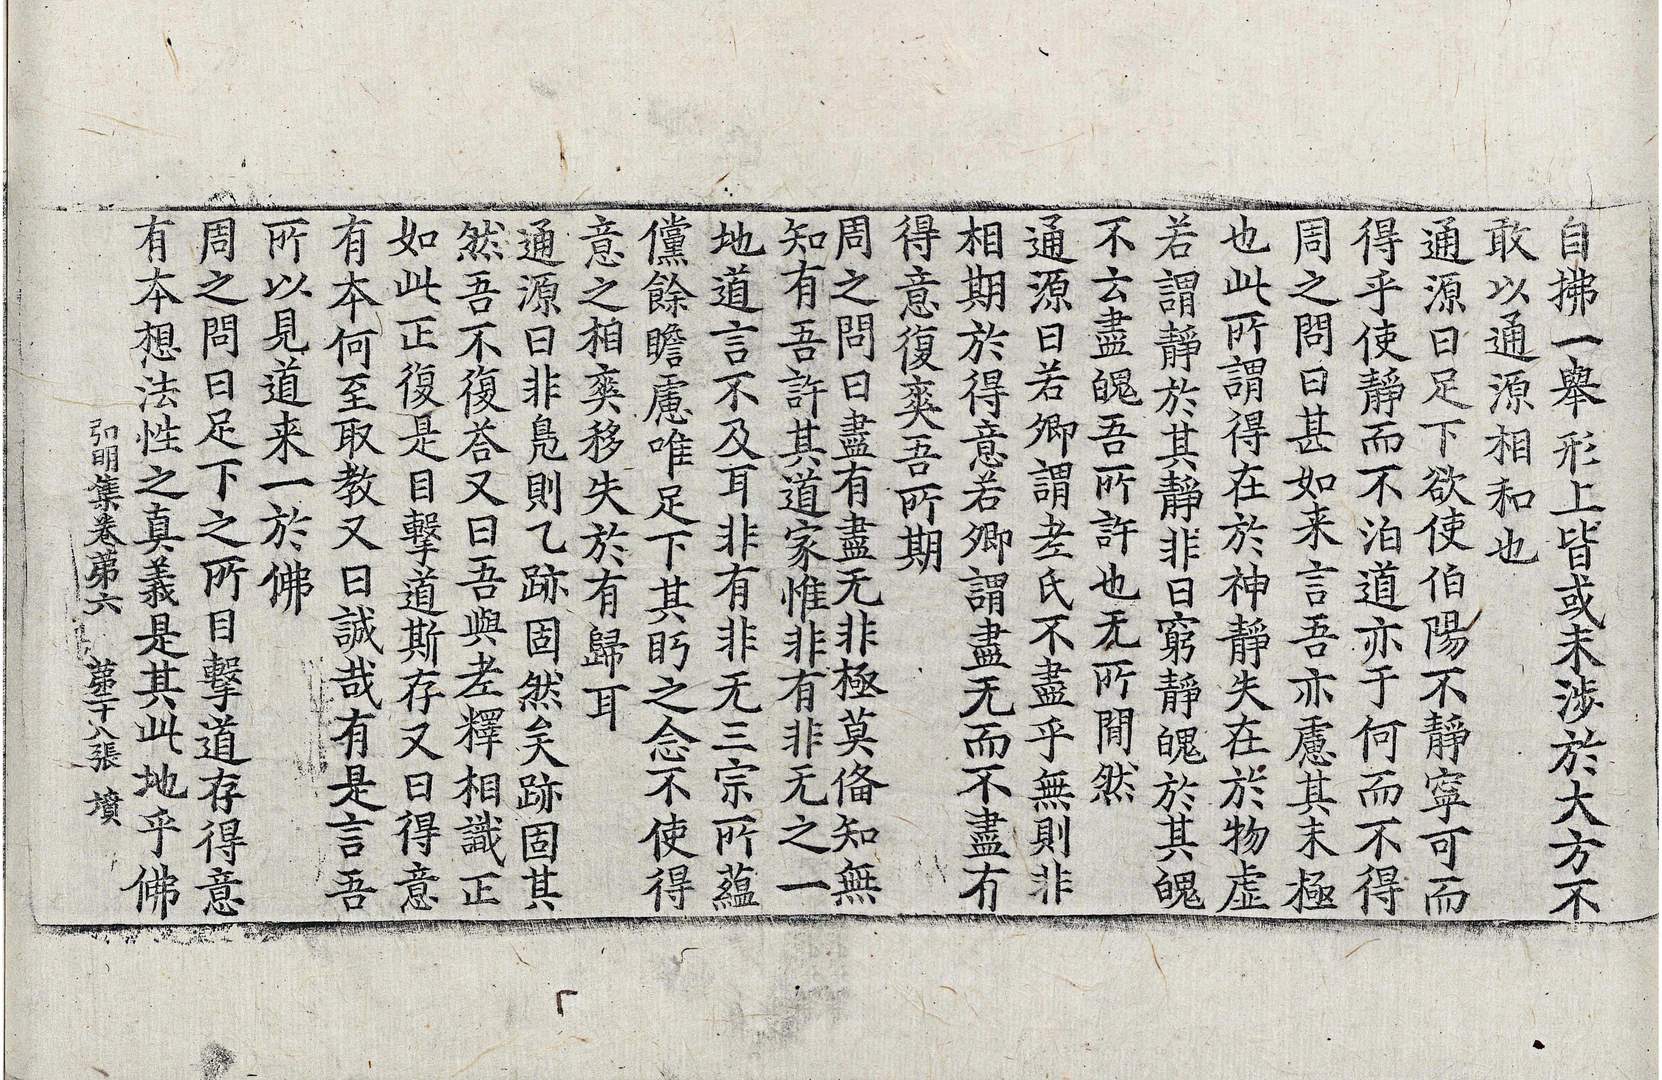 自拂一舉形上皆或未涉於大方不
敢以通源相和也
通源曰足下欲使伯陽不靜寧可而
得乎使靜而不泊道亦于何而不得
周之問曰甚如来言吾亦慮其未極
也此所謂得在於神靜失在於物虛
若謂靜於其靜非曰窮靜魄於其魄
不云盡魄吾所許也无所間然
通源曰若卿謂老氏不盡乎無則非
相期於得意若卿謂盡无而不盡有
得意復爽吾所期
周之問曰盡有盡无非極莫俻知無
知有吾許其道家惟非有非无之一
地道言不及耳非有非无三宗所蘊
儻餘瞻慮唯足下其眄之念不使得
意之相爽移失於有歸耳
通源曰非鳧則乙跡固然矣跡固其
然吾不復荅又曰吾與老釋相識正
如此正復是目擊道斯存又曰得意
有本何至取教又曰誠哉有是言吾
所以見道来一於佛
周之問曰足下之所目擊道存得意
有本想法性之真義是其此地乎佛
弘明集卷苐六　苐二十八張　墳